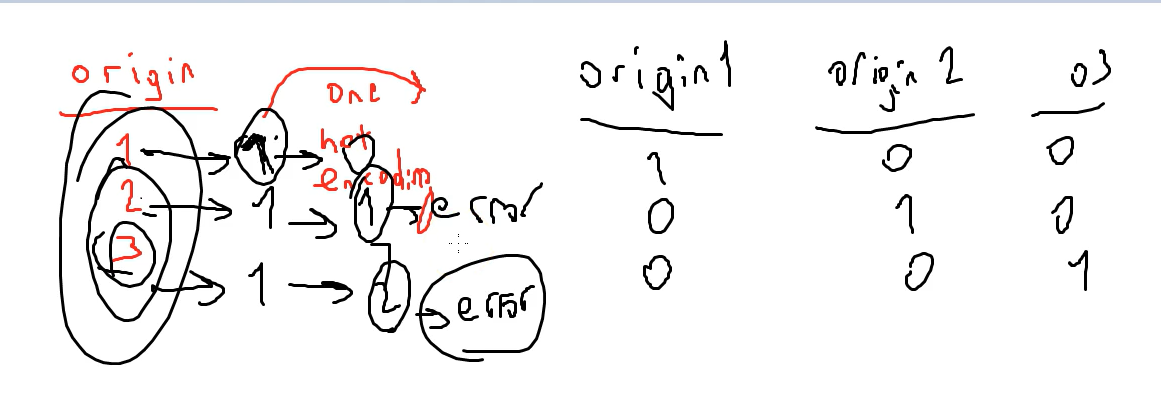 origin
one
hot
encoding
1 → 1 → 0
2 → 1 → 1 → error
3 → 1 → 2 → error
origin1 origin2 o3
1 0 0
0 1 0
0 0 1